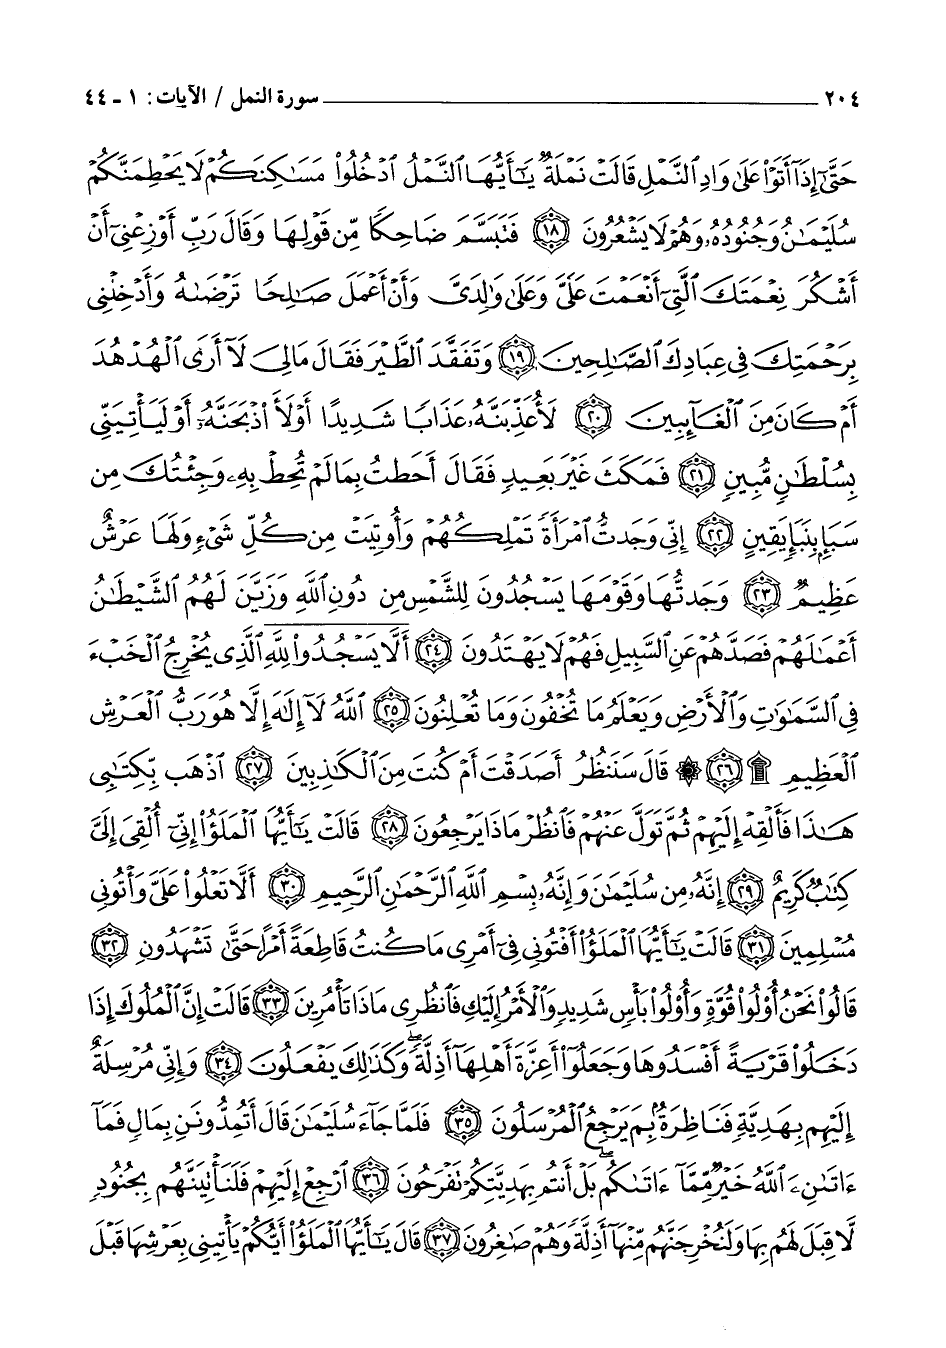 ٢٠٤ سورة النمل / الآيات: ١ - ٤٤
حَتَّىٰٓ إِذَآ أَتَوْا۟ عَلَىٰ وَادِ ٱلنَّمْلِ قَالَتْ نَمْلَةٌ يَٰٓأَيُّهَا ٱلنَّمْلُ ٱدْخُلُوا۟ مَسَٰكِنَكُمْ لَا يَحْطِمَنَّكُمْ
سُلَيْمَٰنُ وَجُنُودُهُۥ وَهُمْ لَا يَشْعُرُونَ ﴿١٨﴾ فَتَبَسَّمَ ضَاحِكًا مِّن قَوْلِهَا وَقَالَ رَبِّ أَوْزِعْنِىٓ أَنْ
أَشْكُرَ نِعْمَتَكَ ٱلَّتِىٓ أَنْعَمْتَ عَلَىَّ وَعَلَىٰ وَٰلِدَىَّ وَأَنْ أَعْمَلَ صَٰلِحًا تَرْضَىٰهُ وَأَدْخِلْنِى
بِرَحْمَتِكَ فِى عِبَادِكَ ٱلصَّٰلِحِينَ ﴿١٩﴾ وَتَفَقَّدَ ٱلطَّيْرَ فَقَالَ مَالِىَ لَآ أَرَى ٱلْهُدْهُدَ
أَمْ كَانَ مِنَ ٱلْغَآئِبِينَ ﴿٢٠﴾ لَأُعَذِّبَنَّهُۥ عَذَابًا شَدِيدًا أَوْ لَأَا۟ذْبَحَنَّهُۥٓ أَوْ لَيَأْتِيَنِّى
بِسُلْطَٰنٍ مُّبِينٍ ﴿٢١﴾ فَمَكَثَ غَيْرَ بَعِيدٍ فَقَالَ أَحَطتُ بِمَا لَمْ تُحِطْ بِهِۦ وَجِئْتُكَ مِن
سَبَإٍۭ بِنَبَإٍ يَقِينٍ ﴿٢٢﴾ إِنِّى وَجَدتُّ ٱمْرَأَةً تَمْلِكُهُمْ وَأُوتِيَتْ مِن كُلِّ شَىْءٍ وَلَهَا عَرْشٌ
عَظِيمٌ ﴿٢٣﴾ وَجَدتُّهَا وَقَوْمَهَا يَسْجُدُونَ لِلشَّمْسِ مِن دُونِ ٱللَّهِ وَزَيَّنَ لَهُمُ ٱلشَّيْطَٰنُ
أَعْمَٰلَهُمْ فَصَدَّهُمْ عَنِ ٱلسَّبِيلِ فَهُمْ لَا يَهْتَدُونَ ﴿٢٤﴾ أَلَّا يَسْجُدُوا۟ لِلَّهِ ٱلَّذِى يُخْرِجُ ٱلْخَبْءَ
فِى ٱلسَّمَٰوَٰتِ وَٱلْأَرْضِ وَيَعْلَمُ مَا تُخْفُونَ وَمَا تُعْلِنُونَ ﴿٢٥﴾ ٱللَّهُ لَآ إِلَٰهَ إِلَّا هُوَ رَبُّ ٱلْعَرْشِ
ٱلْعَظِيمِ ۩ ﴿٢٦﴾ ۞ قَالَ سَنَنظُرُ أَصَدَقْتَ أَمْ كُنتَ مِنَ ٱلْكَٰذِبِينَ ﴿٢٧﴾ ٱذْهَب بِّكِتَٰبِى
هَٰذَا فَأَلْقِهْ إِلَيْهِمْ ثُمَّ تَوَلَّ عَنْهُمْ فَٱنظُرْ مَاذَا يَرْجِعُونَ ﴿٢٨﴾ قَالَتْ يَٰٓأَيُّهَا ٱلْمَلَؤُا۟ إِنِّىٓ أُلْقِىَ إِلَىَّ
كِتَٰبٌ كَرِيمٌ ﴿٢٩﴾ إِنَّهُۥ مِن سُلَيْمَٰنَ وَإِنَّهُۥ بِسْمِ ٱللَّهِ ٱلرَّحْمَٰنِ ٱلرَّحِيمِ ﴿٣٠﴾ أَلَّا تَعْلُوا۟ عَلَىَّ وَأْتُونِى
مُسْلِمِينَ ﴿٣١﴾ قَالَتْ يَٰٓأَيُّهَا ٱلْمَلَؤُا۟ أَفْتُونِى فِىٓ أَمْرِى مَا كُنتُ قَاطِعَةً أَمْرًا حَتَّىٰ تَشْهَدُونِ ﴿٣٢﴾
قَالُوا۟ نَحْنُ أُو۟لُوا۟ قُوَّةٍ وَأُو۟لُوا۟ بَأْسٍ شَدِيدٍ وَٱلْأَمْرُ إِلَيْكِ فَٱنظُرِى مَاذَا تَأْمُرِينَ ﴿٣٣﴾ قَالَتْ إِنَّ ٱلْمُلُوكَ إِذَا
دَخَلُوا۟ قَرْيَةً أَفْسَدُوهَا وَجَعَلُوٓا۟ أَعِزَّةَ أَهْلِهَآ أَذِلَّةً ۖ وَكَذَٰلِكَ يَفْعَلُونَ ﴿٣٤﴾ وَإِنِّى مُرْسِلَةٌ
إِلَيْهِم بِهَدِيَّةٍ فَنَاظِرَةٌۢ بِمَ يَرْجِعُ ٱلْمُرْسَلُونَ ﴿٣٥﴾ فَلَمَّا جَآءَ سُلَيْمَٰنَ قَالَ أَتُمِدُّونَنِ بِمَالٍ فَمَآ
ءَاتَىٰنِۦَ ٱللَّهُ خَيْرٌ مِّمَّآ ءَاتَىٰكُم ۖ بَلْ أَنتُم بِهَدِيَّتِكُمْ تَفْرَحُونَ ﴿٣٦﴾ ٱرْجِعْ إِلَيْهِمْ فَلَنَأْتِيَنَّهُم بِجُنُودٍ
لَّا قِبَلَ لَهُم بِهَا وَلَنُخْرِجَنَّهُم مِّنْهَآ أَذِلَّةً وَهُمْ صَٰغِرُونَ ﴿٣٧﴾ قَالَ يَٰٓأَيُّهَا ٱلْمَلَؤُا۟ أَيُّكُمْ يَأْتِينِى بِعَرْشِهَا قَبْلَ